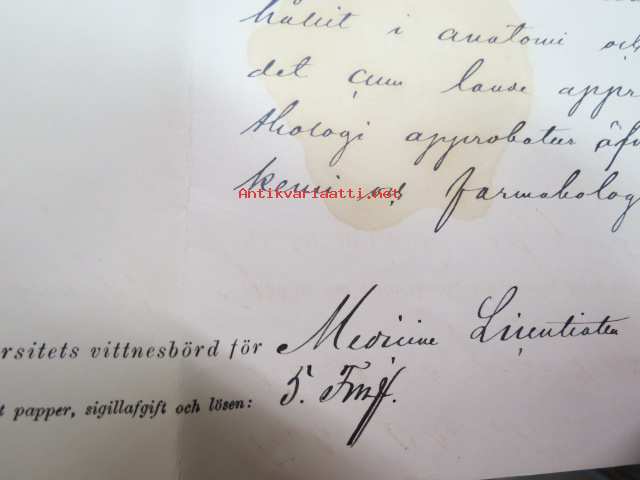 hållit i anatomi och
det cum laude appr
thologi approbatur äfv
kemi och farmakolog
Antikvariaatti.net
rsitets vittnesbörd för Medicine Licentiaten
t papper, sigillafgift och lösen: 5. Fmf.